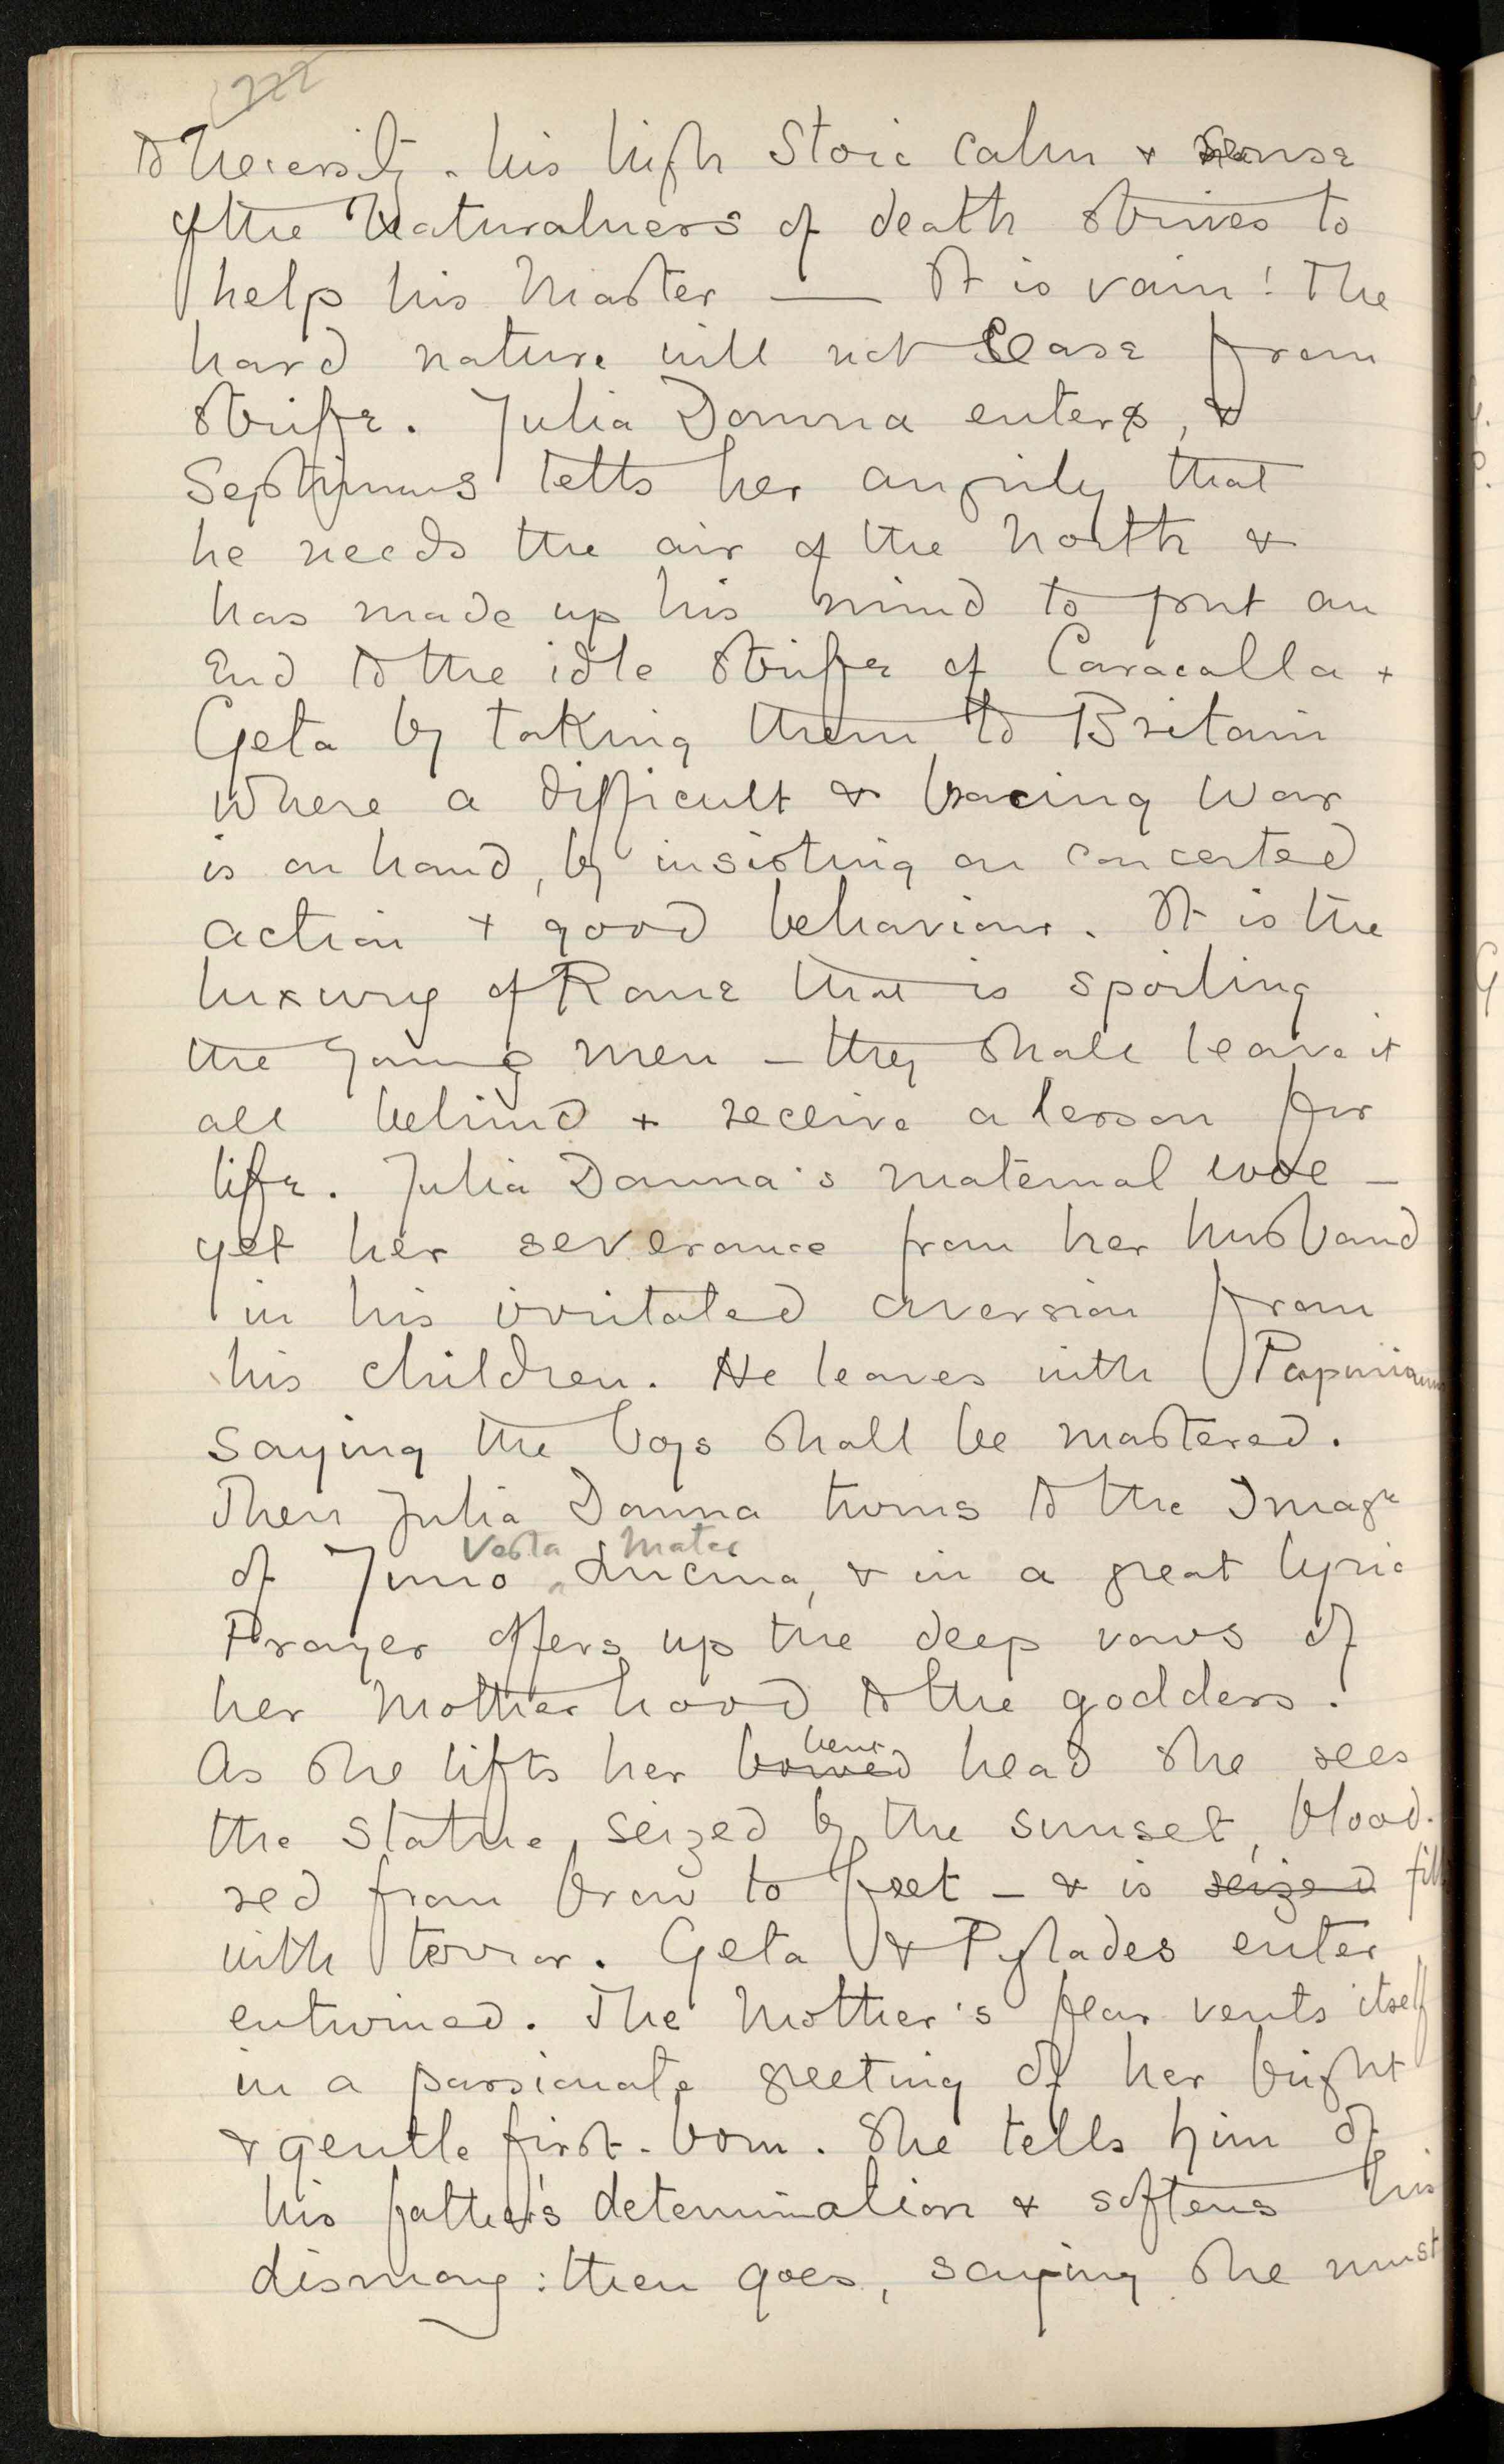 222
to necessity. his high Stoic calm & sense
of the Naturalness of death strives to
help his Master — It is vain! The
hard nature will not cease from
strife. Julia Domna enters, &
Septimus tells her angrily that
he needs the air of the North &
has made up his mind to put an
End to the idle strife of Caracalla +
Geta by taking them to Britain
Where a difficult & bracing War
is on hand, by insisting on concerted
action + good behaviour. It is the
luxury of Rome that is spoiling
the young men – they shall leave it
all behind + receive a lesson for
life. Julia Domna's maternal woe –
yet her severance from her husband
in his irritated aversion from
his children. He leaves with Papinianus
saying the boys shall be mastered.
Then Julia Domna turns to the Image
Vesta Mater
of Juno Lucina, & in a great lyric
Prayer offers up the deep vows of
her Motherhood to the goddess.
bent
As she lifts her bowed head she sees
the statue, seized by the sunset, blood-
red from brow to feet – & is seized fill
with terror. Geta & Pylades enter
entwined. The Mother's fear vents itself
in a passionate greeting of her bright
& gentle first-born. She tells him of
his father's determination & softens his
dismay: then goes, saying she must